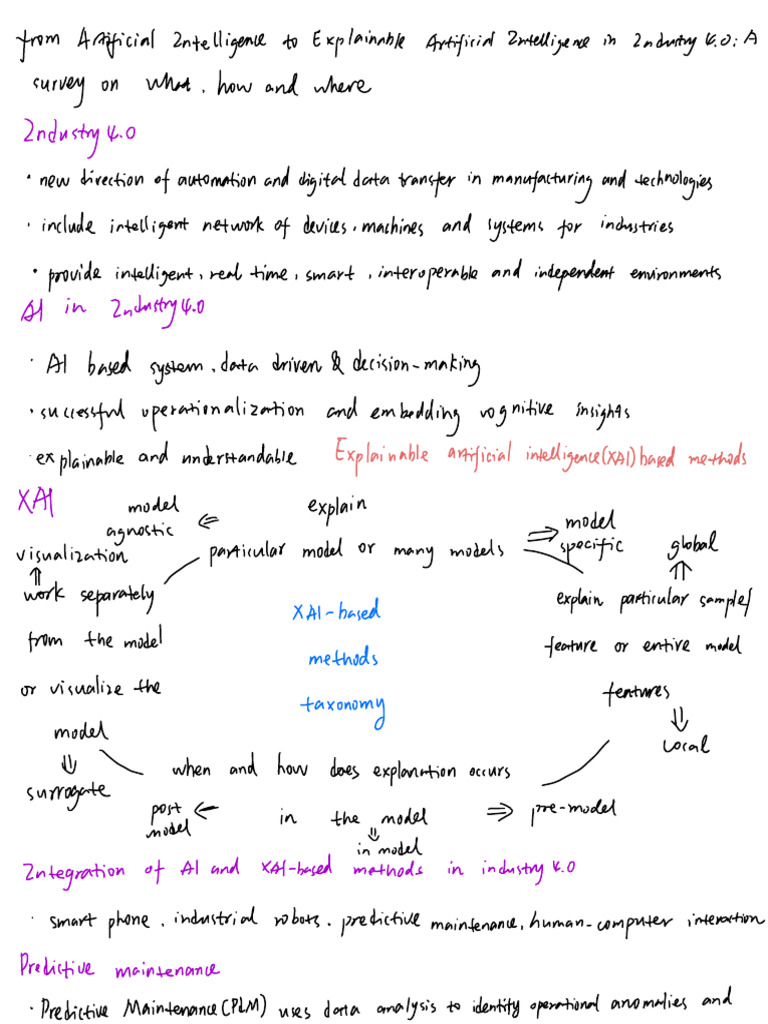 from Artificial Intelligence to Explainable Artificial Intelligence in Industry 4.0: A
survey on what, how and where
Industry 4.0
· new direction of automation and digital data transfer in manufacturing and technologies
· include intelligent network of devices, machines and systems for industries
· provide intelligent, real time, smart, interoperable and independent environments
AI in Industry 4.0
· AI based system, data driven & decision-making
· successful operationalization and embedding cognitive insights
· explainable and understandable Explainable artificial intelligence(XAI)based methods
XAI
model agnostic ⇐ explain particular model or many models ⇒ model specific
visualization
⇑
work separately
from the model
or visualize the
model
⇓
surrogate
XAI-based
methods
taxonomy
global
⇑
explain particular sample/
feature or entire model
features
⇓
local
when and how does explanation occurs
post model ⇐ in the model ⇒ pre-model
⇓
in model
Integration of AI and XAI-based methods in industry 4.0
· smart phone, industrial robots, predictive maintenance, human-computer interaction
Predictive maintenance
· Predictive Maintenance(PLM) uses data analysis to identify operational anomalies and